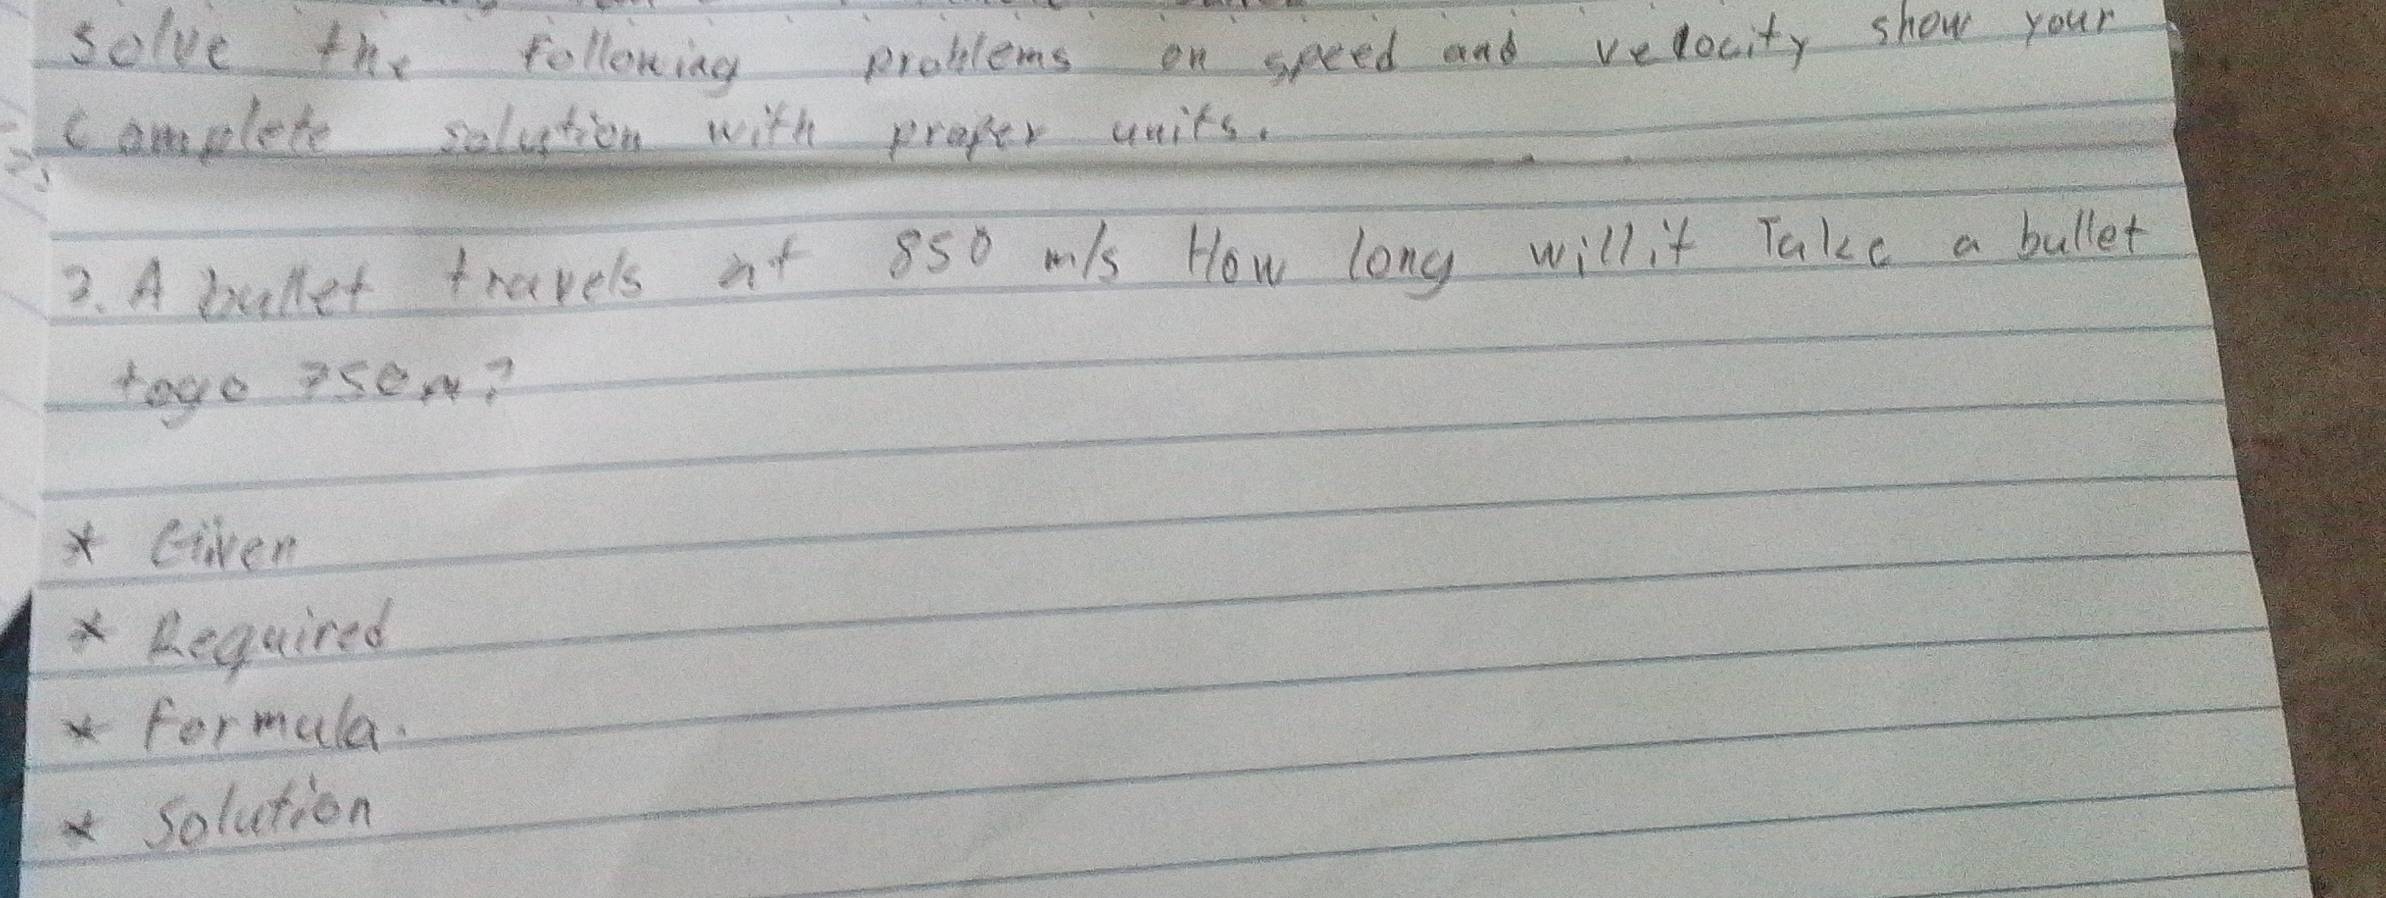 solve the following problems on speed and velocity show your
complete solution with proper units.
2. A bullet travels at 850 m/s How long will it Take a bullet
to go 750m?
* Given
* Required
* Formula.
* Solution